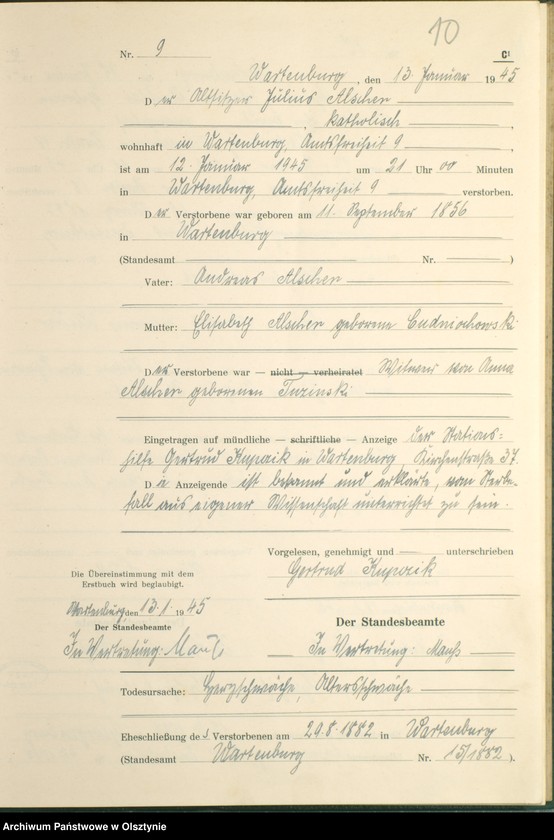 10
Nr. 9 C¹
Wartenburg, den 13. Januar 1945
Der Altsitzer Julius Alscher
katholisch,
wohnhaft in Wartenburg, Amtsfreiheit 9,
ist am 12. Januar 1945 um 21 Uhr 00 Minuten
in Wartenburg, Amtsfreiheit 9 verstorben.
Der Verstorbene war geboren am 11. September 1856
in Wartenburg
(Standesamt Nr. )
Vater: Andreas Alscher
Mutter: Elisabeth Alscher geborene Cudniochowski
Der Verstorbene war — nicht — verheiratet Witwer von Anna
Alscher geborenen Turinski
Eingetragen auf mündliche — schriftliche — Anzeige der Stations-
hilfe Gertrud Kupczik in Wartenburg Kirchenstraße 37.
Die Anzeigende ist bekannt und erklärte, vom Sterbe-
fall aus eigener Wissenschaft unterrichtet zu sein.
Vorgelesen, genehmigt und unterschrieben
Gertrud Kupczik
Die Übereinstimmung mit dem
Erstbuch wird beglaubigt.
Wartenburg, den 13.1.1945
Der Standesbeamte
In Vertretung:
Der Standesbeamte
In Vertretung:
Todesursache: Herzschwäche, Altersschwäche
Eheschließung des Verstorbenen am 29.8.1882 in Wartenburg
(Standesamt Wartenburg Nr. 15/1882).
Archiwum Państwowe w Olsztynie